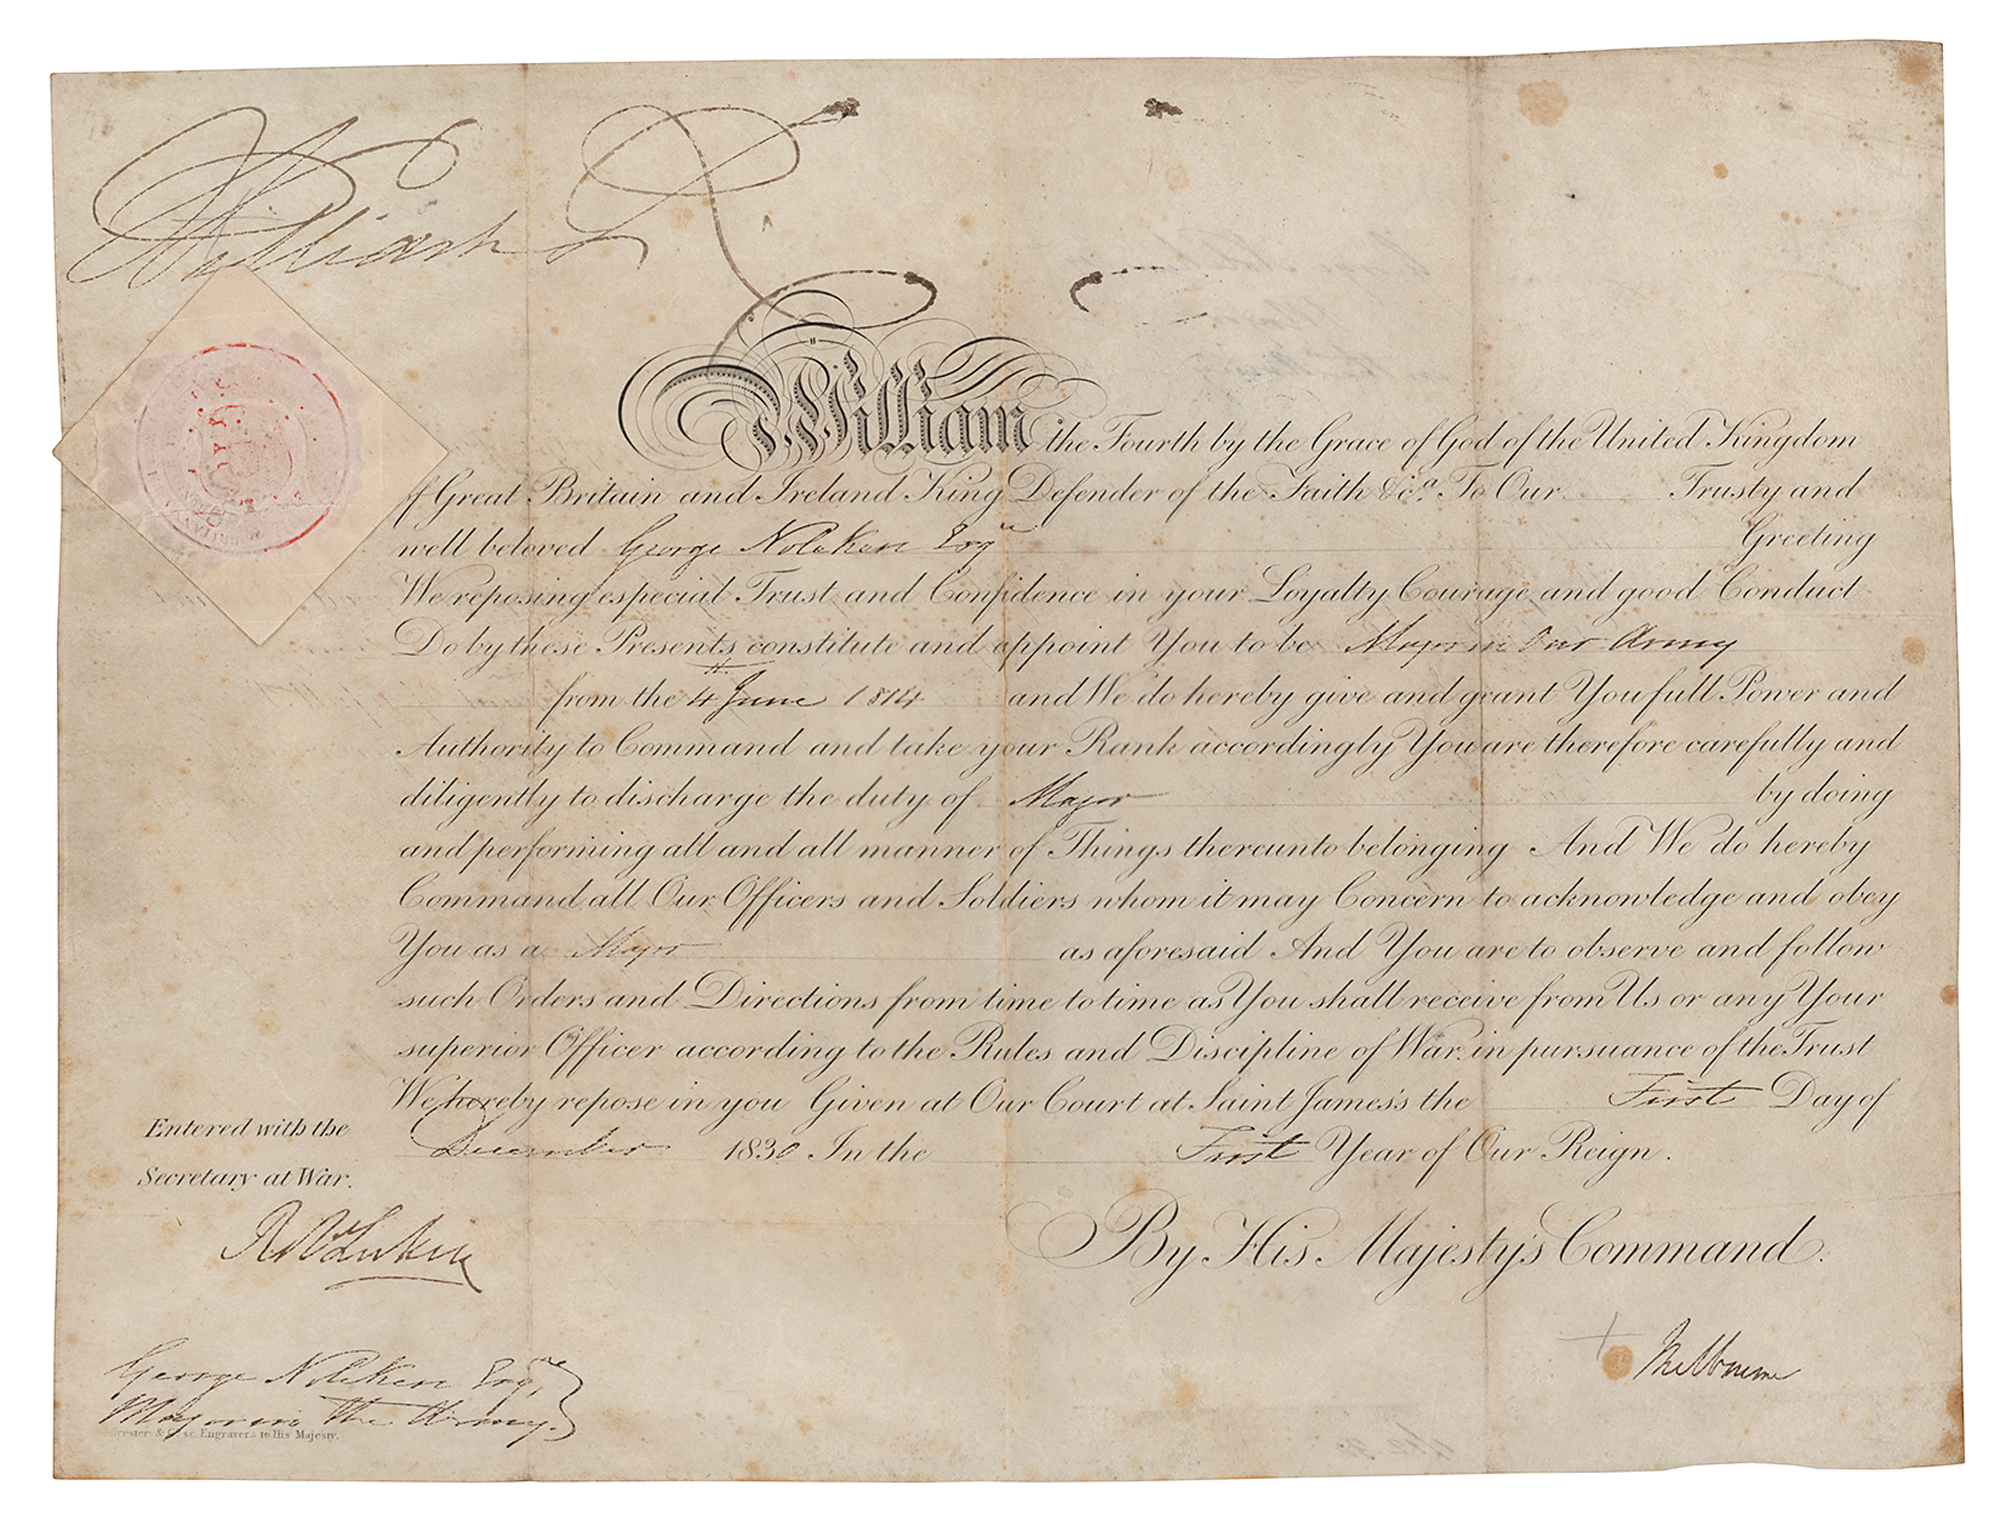 William R
William the Fourth by the Grace of God of the United Kingdom
of Great Britain and Ireland King Defender of the Faith &c.a To Our Trusty and
well beloved George Noleken Esqre Greeting
We reposing especial Trust and Confidence in your Loyalty Courage and good Conduct
Do by these Presents constitute and appoint You to be Major in Our Army
from the 4th June 1814 and We do hereby give and grant You full Power and
Authority to Command and take your Rank accordingly You are therefore carefully and
diligently to discharge the duty of Major by doing
and performing all and all manner of Things thereunto belonging And We do hereby
Command all Our Officers and Soldiers whom it may Concern to acknowledge and obey
You as a Major as aforesaid And You are to observe and follow
such Orders and Directions from time to time as You shall receive from Us or any Your
superior Officer according to the Rules and Discipline of War. in pursuance of the Trust
We hereby repose in you Given at Our Court at Saint James's the First Day of
December 1830 In the First Year of Our Reign.
Entered with the
Secretary at War.
By His Majesty's Command.
Melbourne
George Noleken Esqre,
Major in the Army.
Engravers to His Majesty.